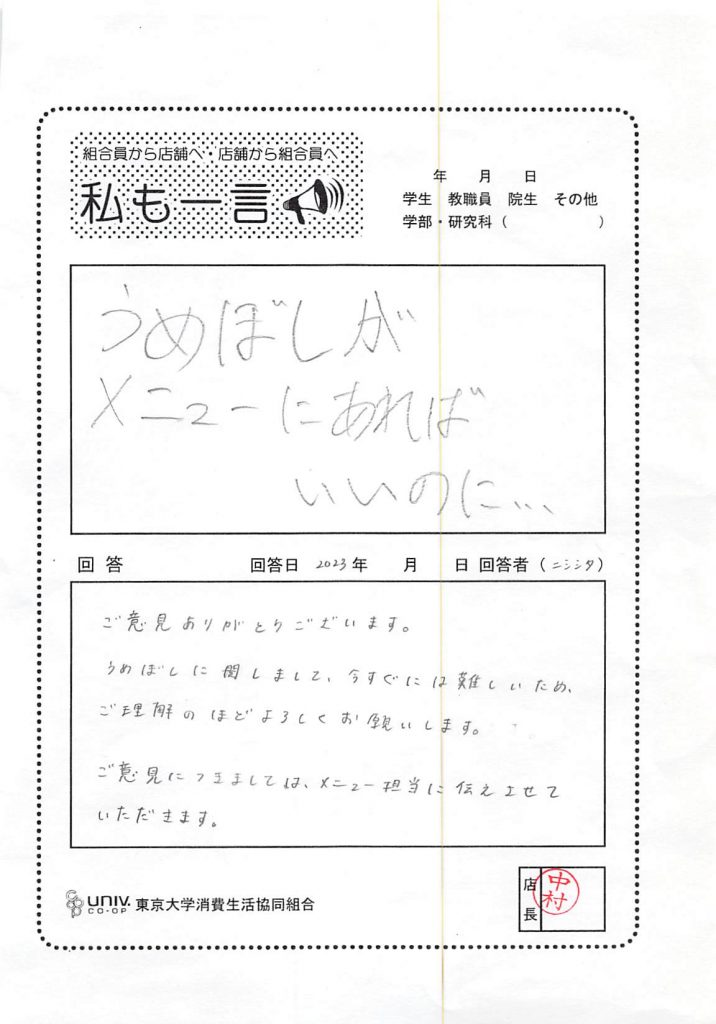 組合員から店舗へ・店舗から組合員へ
私も一言
年 月 日
学生 教職員 院生 その他
学部・研究科( )
うめぼしが
メニューにあれば
いいのに...
回答 回答日 2023年 月 日 回答者(ニシシタ)
ご意見ありがとうございます。
うめぼしに関しまして、今すぐには難しいため、
ご理解のほどよろしくお願いします。
ご意見につきましては、メニュー担当に伝えさせて
いただきます。
coop UNIV. CO-OP 東京大学消費生活協同組合
店長 中村